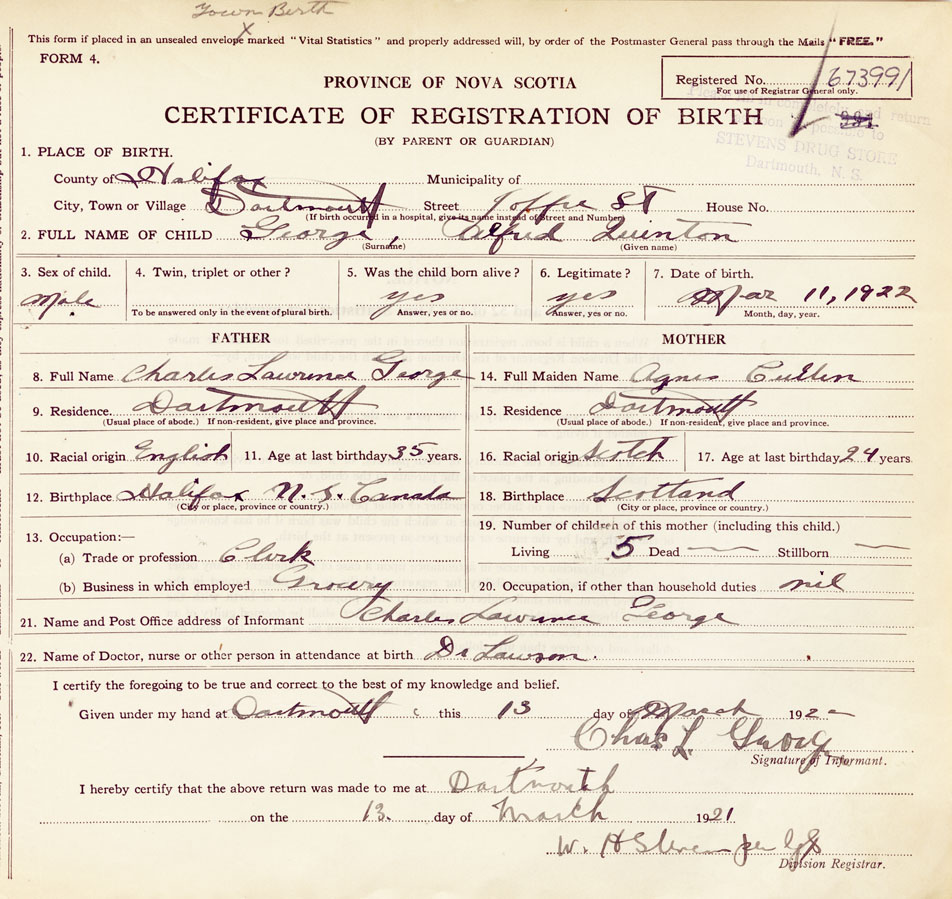 Town Birth
This form if placed in an unsealed envelope marked "Vital Statistics" and properly addressed will, by order of the Postmaster General pass through the Mails "FREE."
FORM 4.
Registered No. 673991
For use of Registrar General only.
PROVINCE OF NOVA SCOTIA
CERTIFICATE OF REGISTRATION OF BIRTH
(BY PARENT OR GUARDIAN)
STEVENS DRUG STORE
Dartmouth, N. S.
1. PLACE OF BIRTH.
County of Halifax Municipality of
City, Town or Village Dartmouth Street Joffre St House No.
(If birth occurred in a hospital, give its name instead of Street and Number)
2. FULL NAME OF CHILD George, Alfred Quinton
(Surname) (Given name)
3. Sex of child. Male
4. Twin, triplet or other?
To be answered only in the event of plural birth.
5. Was the child born alive? yes
Answer, yes or no.
6. Legitimate? yes
Answer, yes or no.
7. Date of birth. Mar 11, 1922
Month, day, year.
FATHER
8. Full Name Charles Lawrence George
9. Residence. Dartmouth
(Usual place of abode.) If non-resident, give place and province.
10. Racial origin English 11. Age at last birthday 35 years.
12. Birthplace Halifax N.S. Canada
(City or place, province or country.)
13. Occupation:—
(a) Trade or profession Clerk
(b) Business in which employed Grocery
MOTHER
14. Full Maiden Name Agnes Cullen
15. Residence Dartmouth
(Usual place of abode.) If non-resident, give place and province.
16. Racial origin Scotch 17. Age at last birthday 24 years.
18. Birthplace Scotland
(City or place, province or country.)
19. Number of children of this mother (including this child.)
Living 5 Dead — Stillborn —
20. Occupation, if other than household duties nil
21. Name and Post Office address of Informant Charles Lawrence George
22. Name of Doctor, nurse or other person in attendance at birth Dr Lawson.
I certify the foregoing to be true and correct to the best of my knowledge and belief.
Given under my hand at Dartmouth this 13 day of March 192
Chas L. George
Signature of Informant.
I hereby certify that the above return was made to me at Dartmouth
on the 13. day of March 1921
W. H Stevens per
Division Registrar.